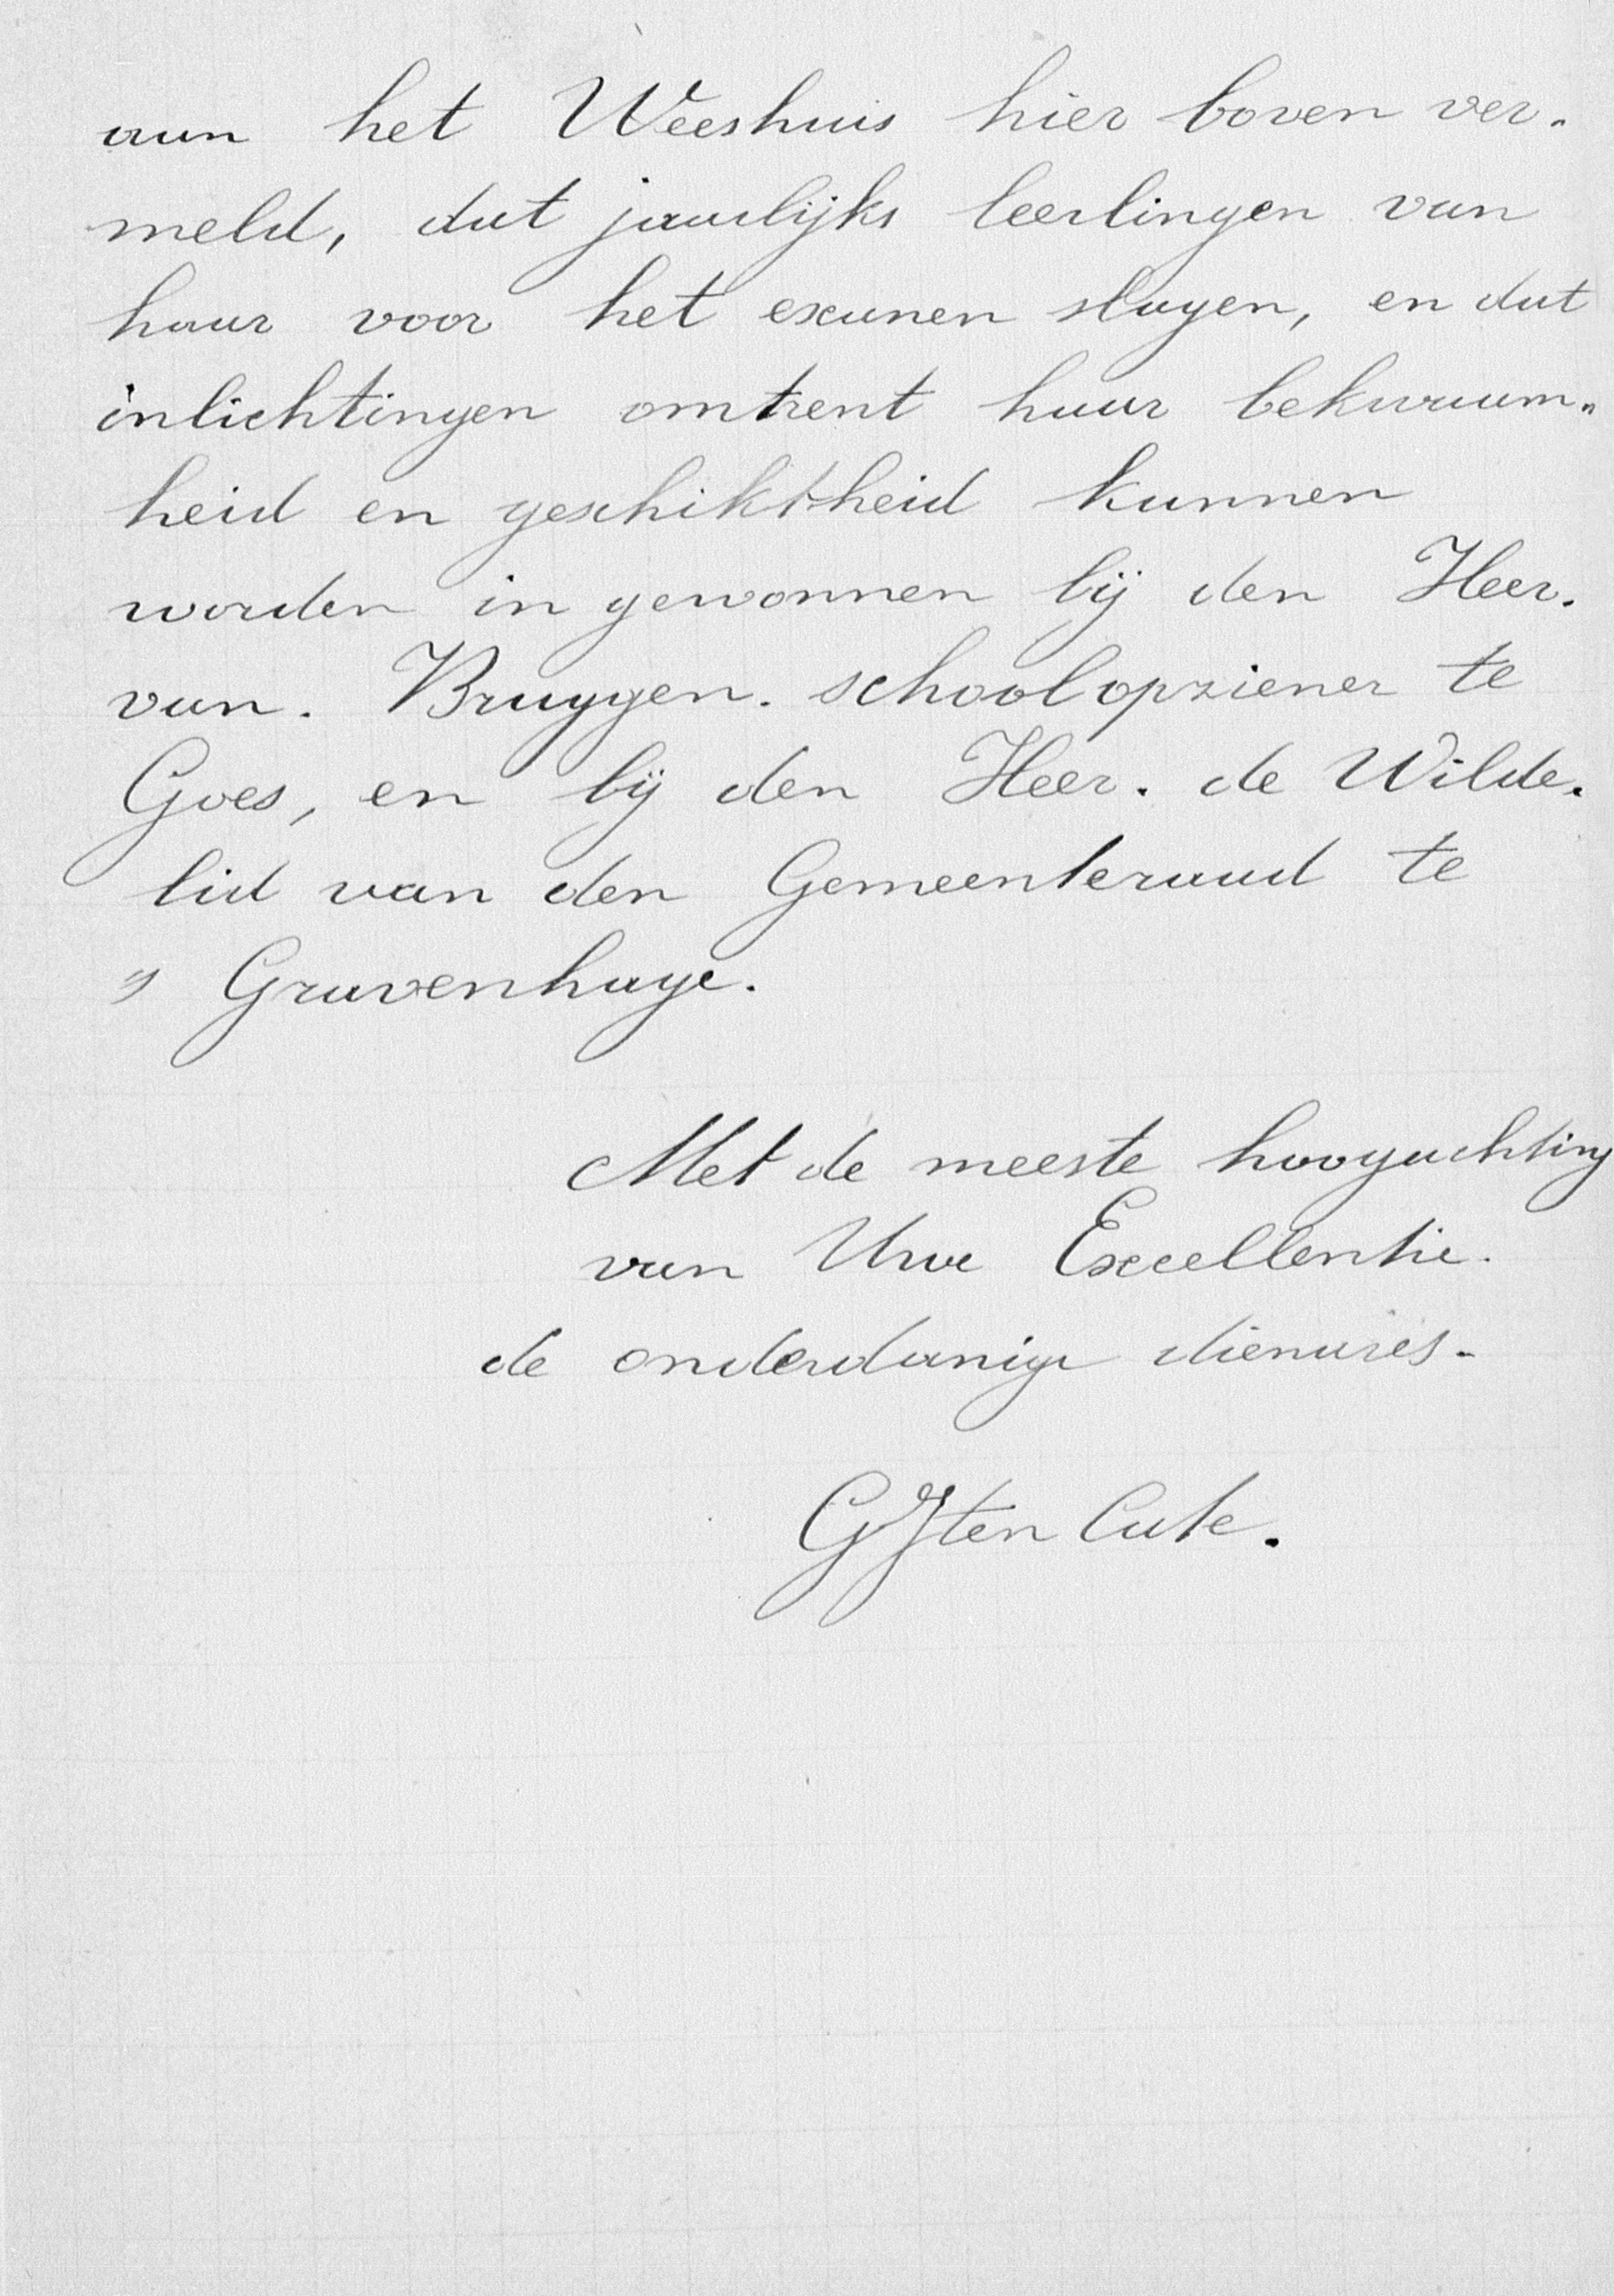 aan het Weeshuis hier boven ver-
meld, dat jaarlijks leerlingen van
haar voor het examen slagen, en dat
inlichtingen omtrent haar bekwaam-
heid en geschiktheid kunnen
worden in gewonnen bij den Heer.
van. Bruggen. schoolopziener te
Goes, en bij den Heer. de Wilde.
lid van den Gemeenteraad te
s Gravenhage.
Met de meeste hoogachting
van Uwe Excellentie.
de onderdanige dienares.
G J ten Cate.